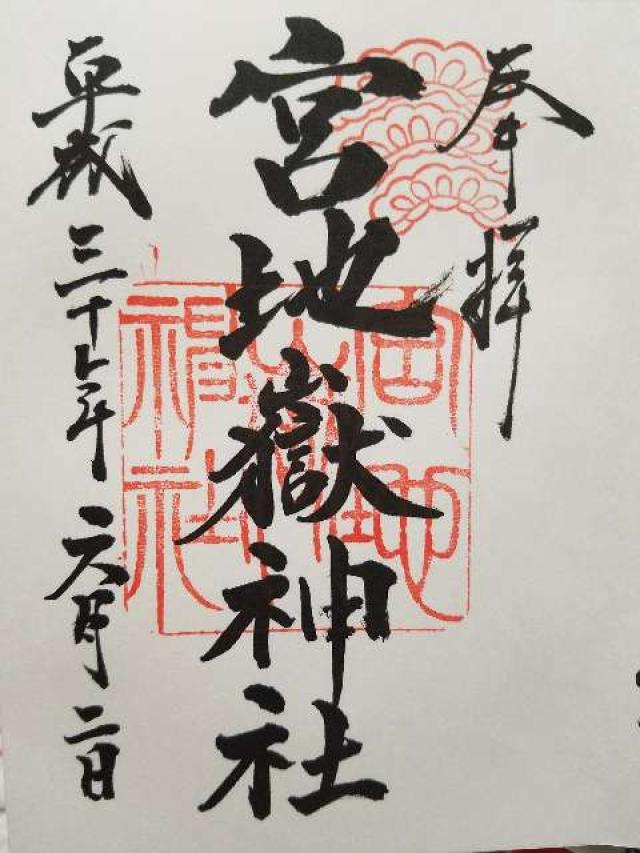 奉拝
宮地嶽神社
平成三十年六月二日
宮地
嶽
神社